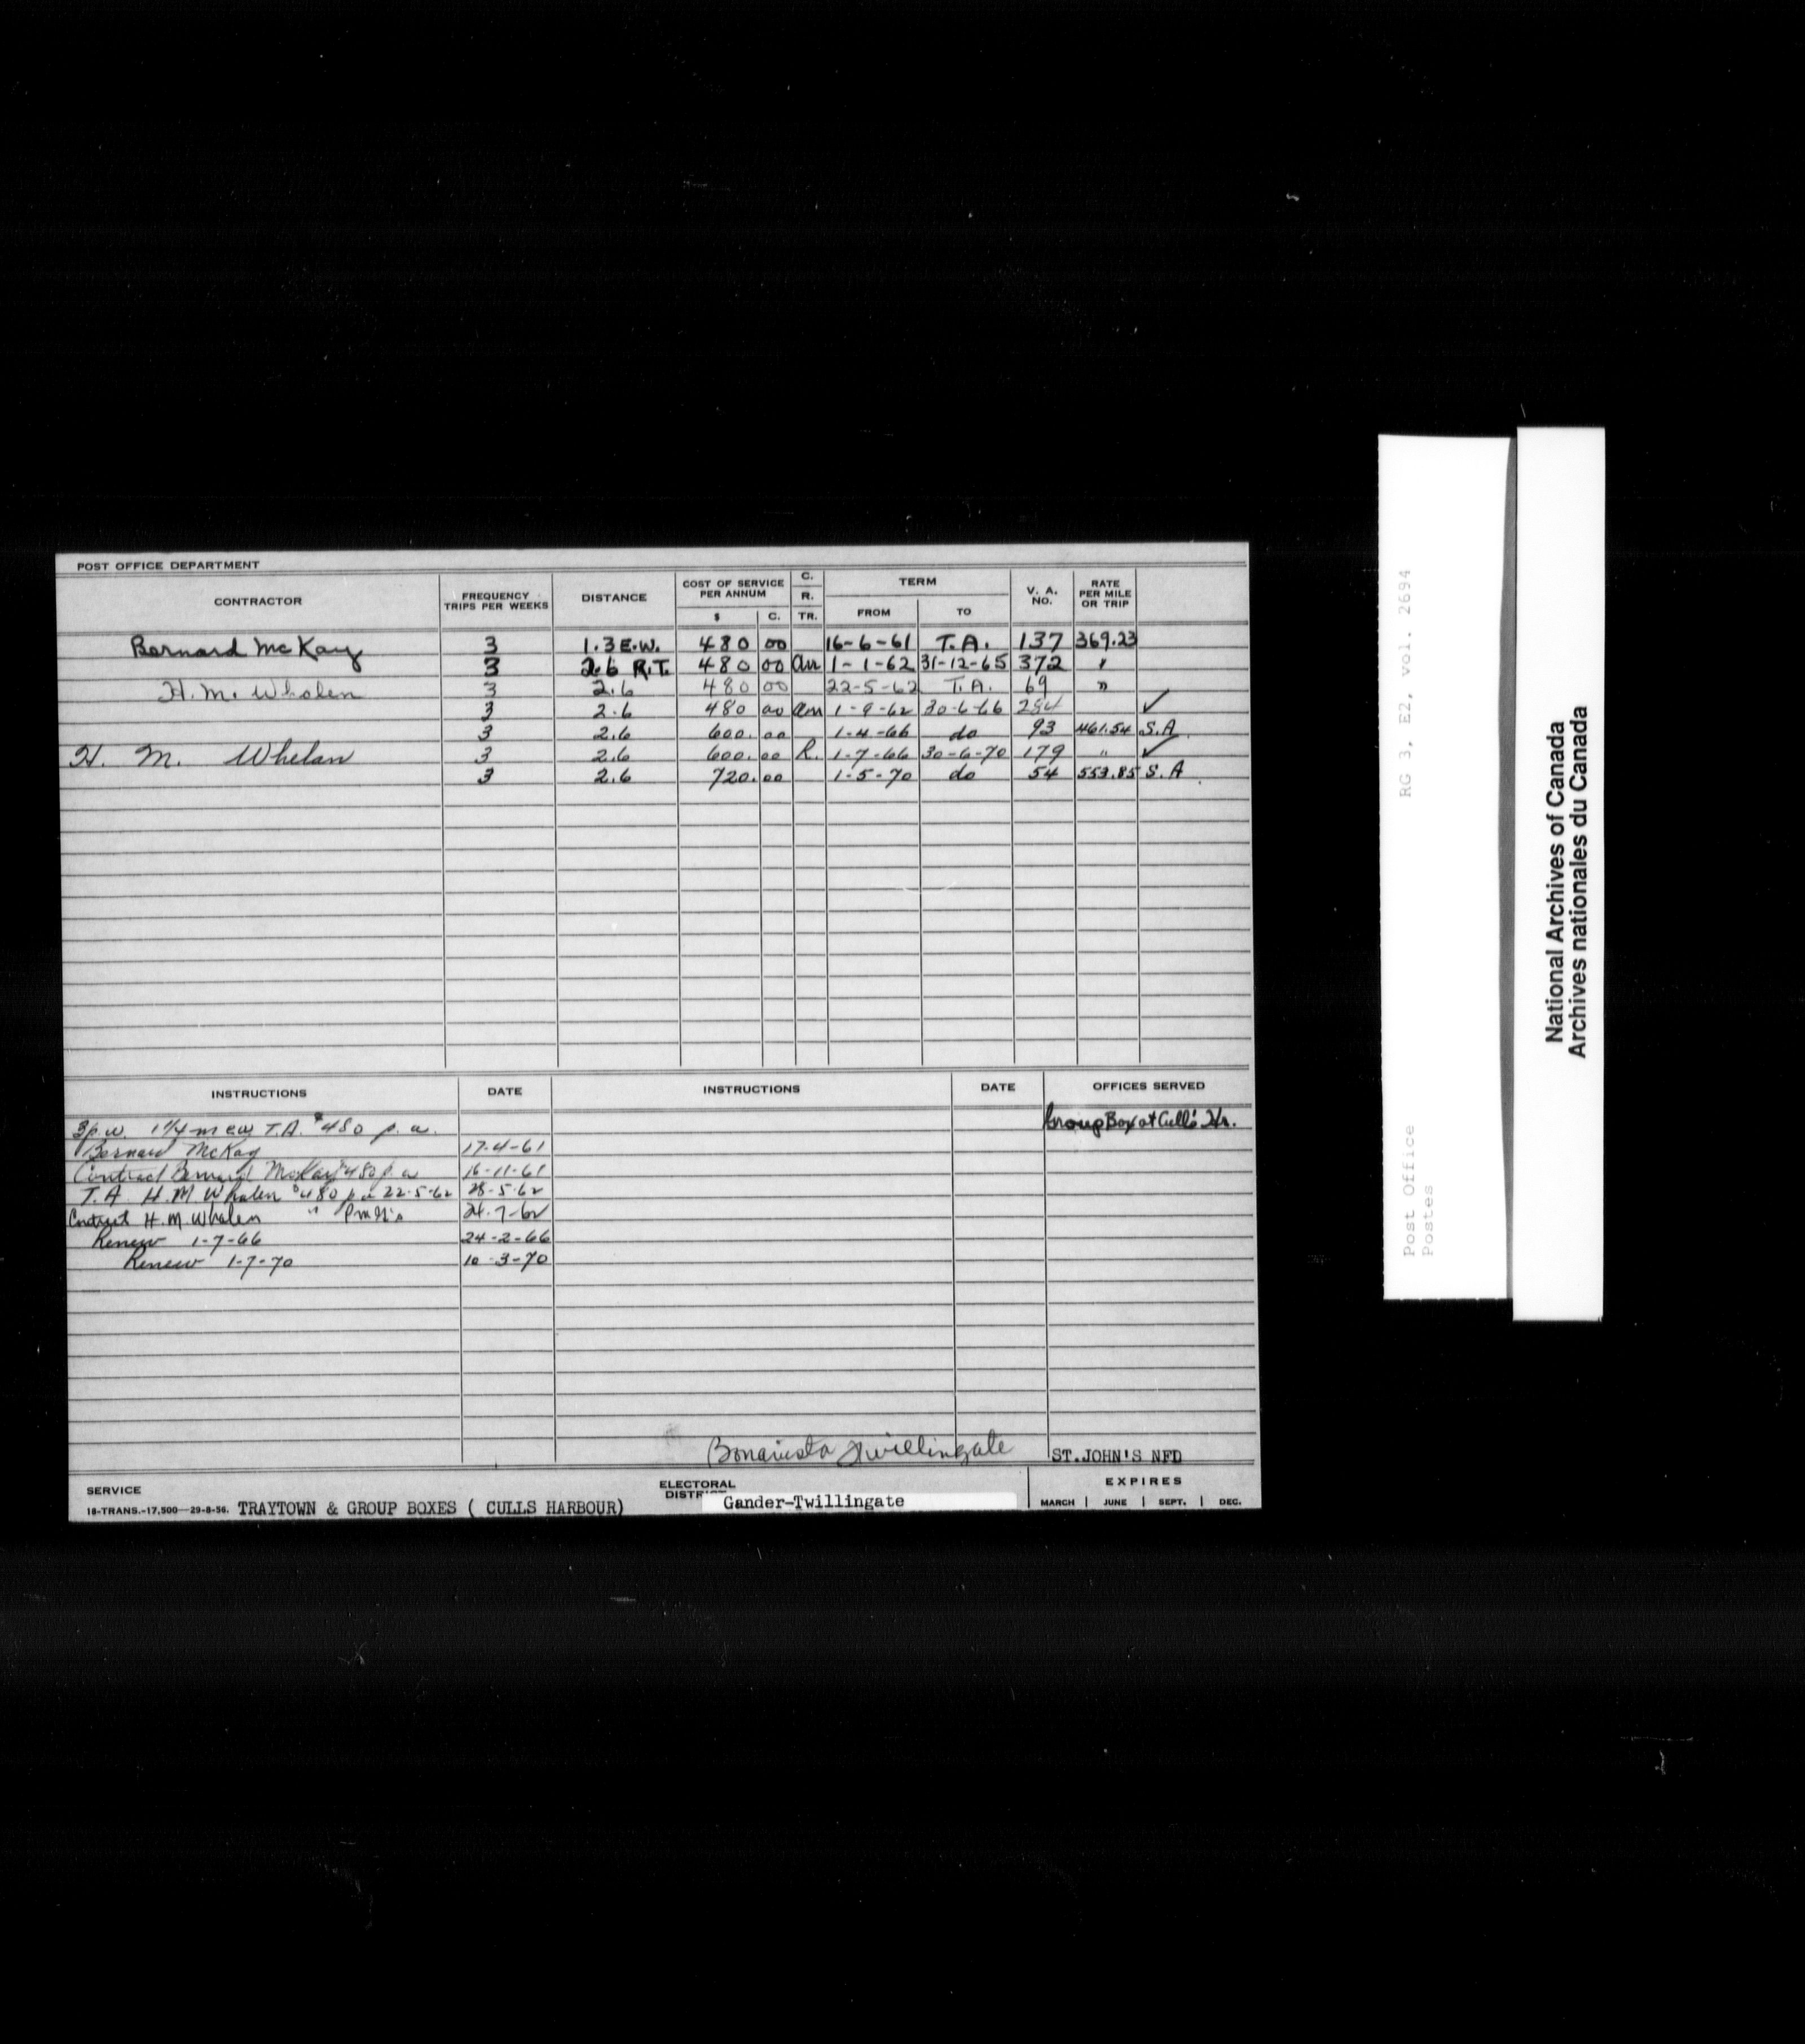 POST OFFICE DEPARTMENT
CONTRACTOR FREQUENCY TRIPS PER WEEKS DISTANCE COST OF SERVICE PER ANNUM $ C. C. R. TR. TERM FROM TO V. A. NO. RATE PER MILE OR TRIP
Bernard McKay 3 1.3 E.W. 480 00 16-6-61 T.A. 137 369.23
3 2.6 R.T. 480 00 an 1-1-62 31-12-65 372 "
H. M. Whalen 3 2.6 480 00 22-5-62 T.A. 69 "
3 2.6 480 00 an 1-9-62 30-6-66 284 ✓
3 2.6 600. 00 1-4-66 do 93 461.54 S.A.
H. M. Whelan 3 2.6 600. 00 R. 1-7-66 30-6-70 179 " ✓
3 2.6 720. 00 1-5-70 do 54 553.85 S.A.
INSTRUCTIONS DATE INSTRUCTIONS DATE OFFICES SERVED
3 p.w. 1 1/4 m ew T.A. $480 p.a. Group Box at Cull's Hr.
Bernard McKay 17-4-61
Contract Bernard McKay $480 p.a 16-11-61
T.A H.M Whalen $480 p.a 22-5-62 28-5-62
Contract H.M. Whalen " 24-7-62
Renew 1-7-66 24-2-66
Renew 1-7-70 10-3-70
Bonavista Twillingate ST.JOHN'S NFD
SERVICE ELECTORAL EXPIRES
18-TRANS.-17,500-29-8-56. TRAYTOWN & GROUP BOXES ( CULLS HARBOUR) Gander-Twillingate MARCH | JUNE | SEPT. | DEC.
RG 3, E2, vol. 2694
Post Office
Postes
National Archives of Canada
Archives nationales du Canada